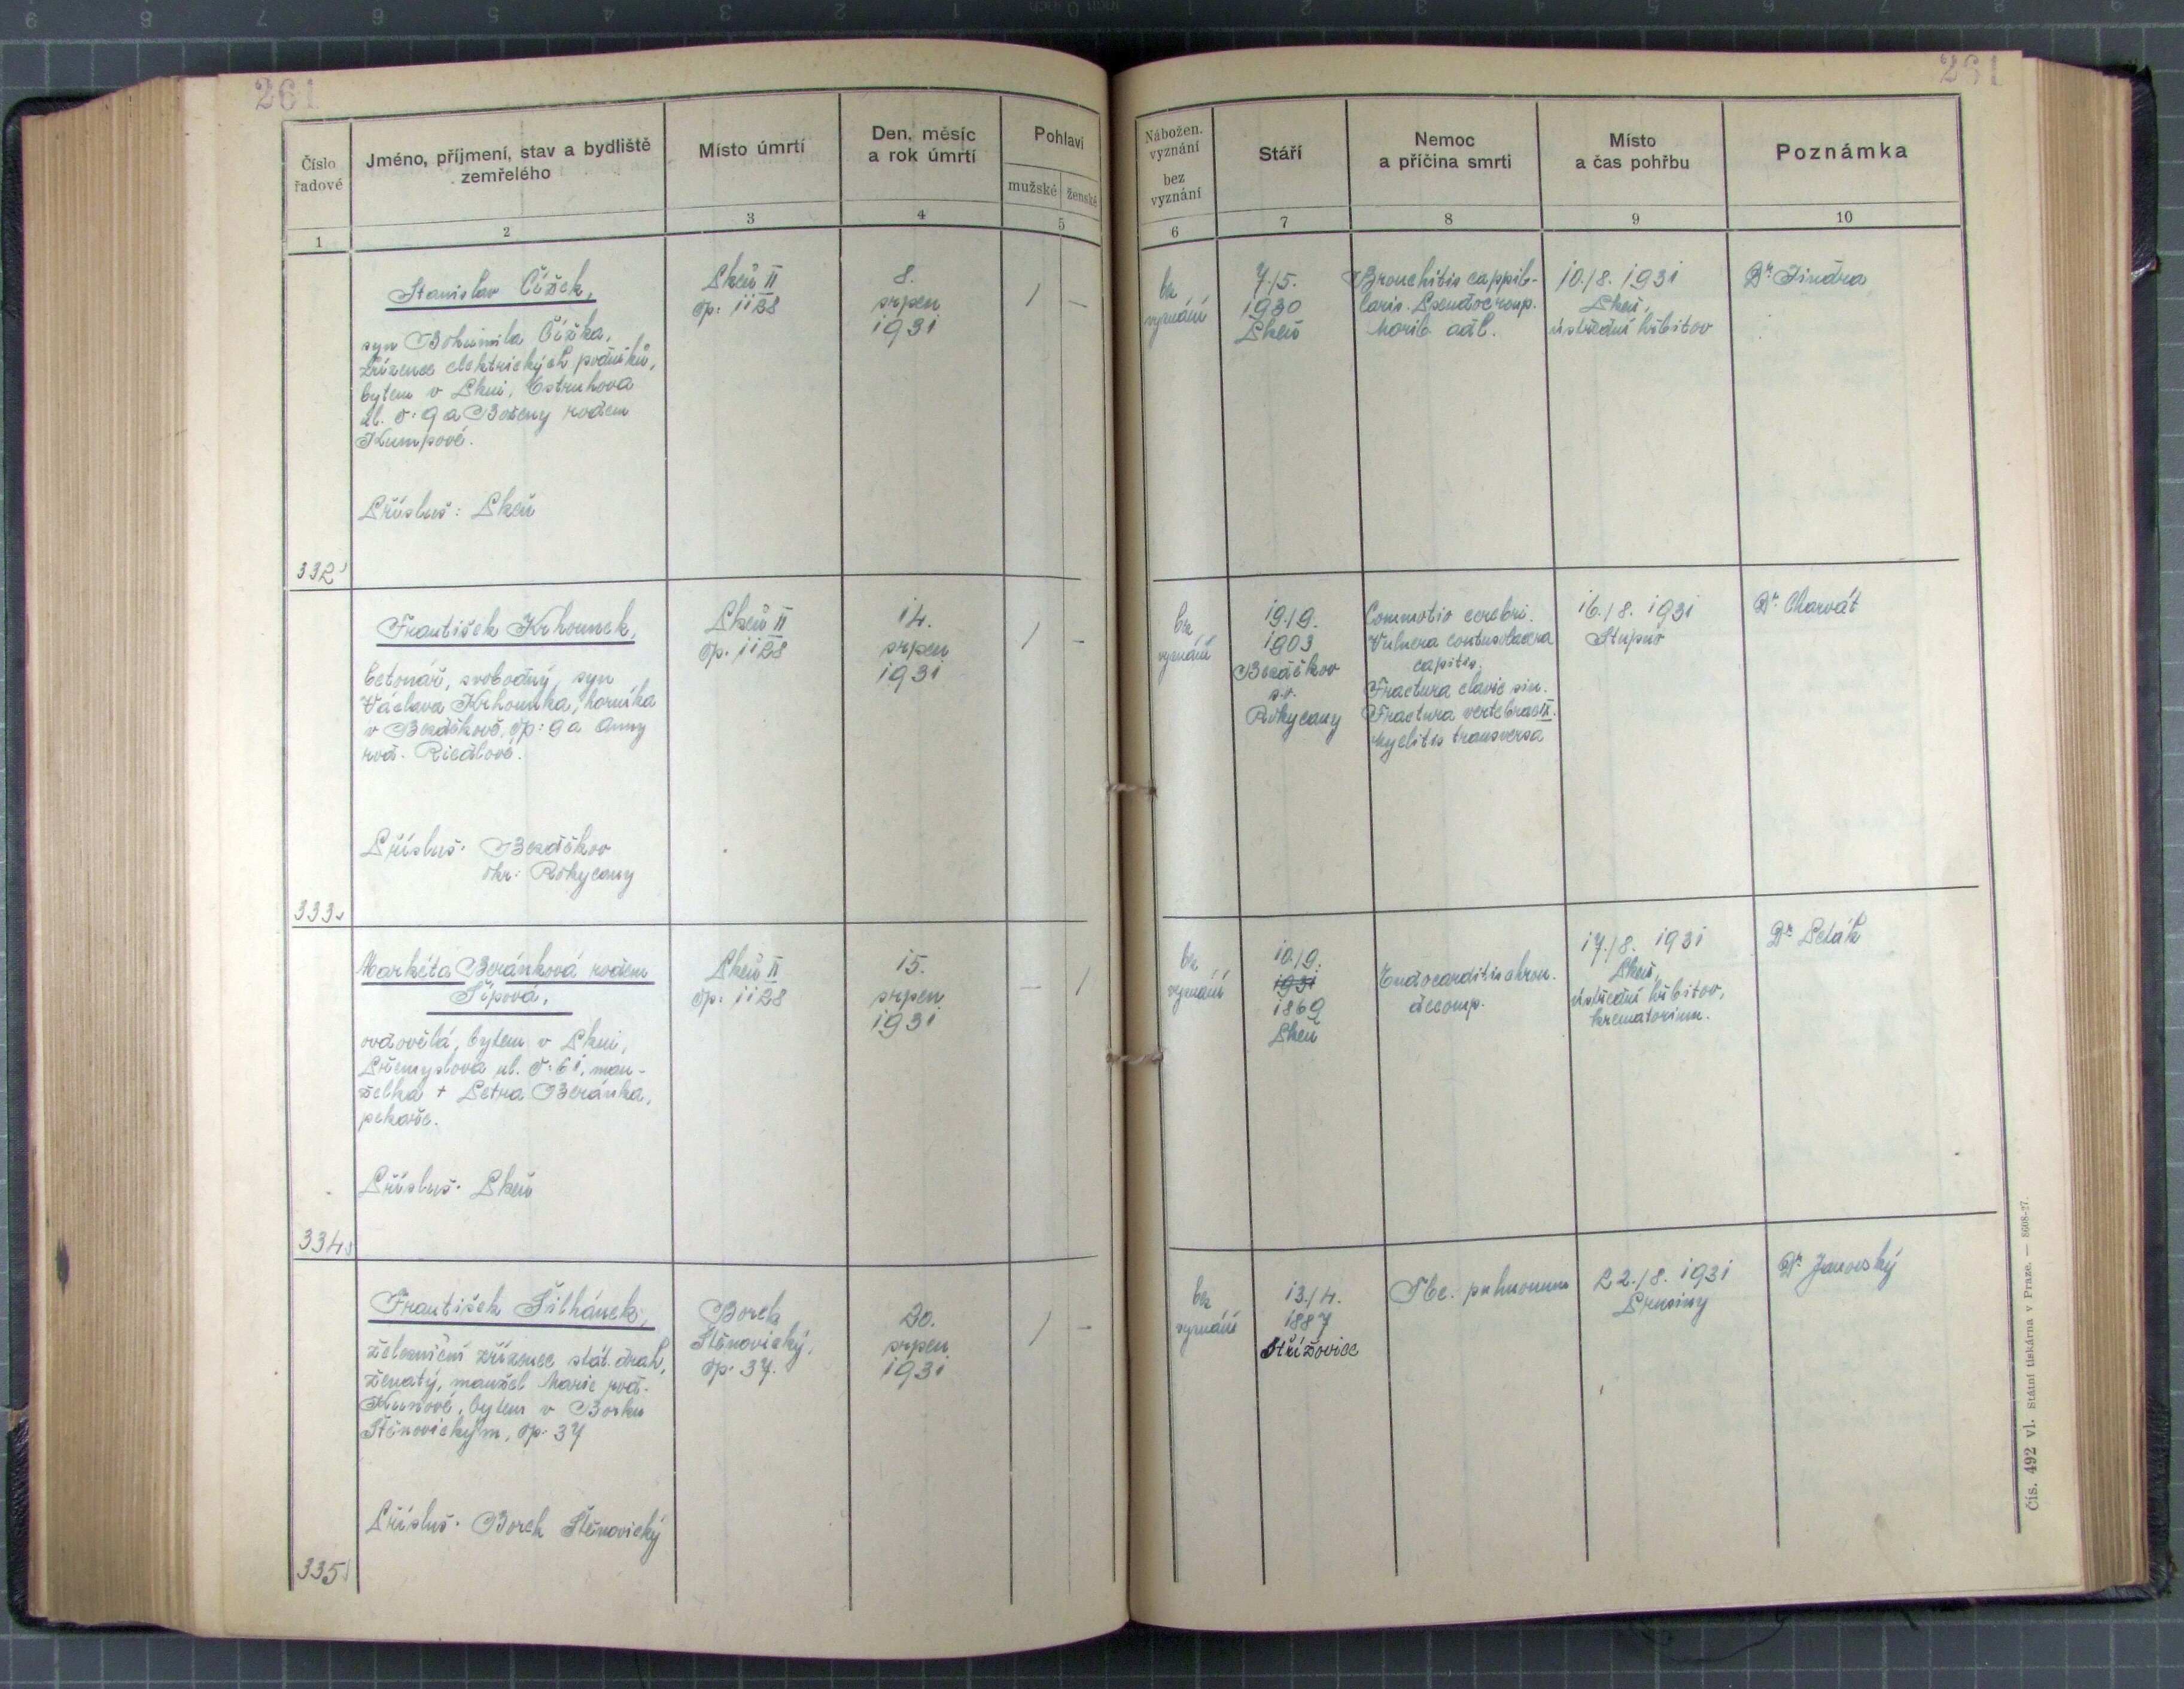 261
261
Číslo řadové
Jméno, příjmení, stav a bydliště zemřelého
Místo úmrtí
Den, měsíc a rok úmrtí
Pohlaví
mužské
ženské
Nábožen. vyznání
bez vyznání
Stáří
Nemoc a příčina smrti
Místo a čas pohřbu
Poznámka
1
2
3
4
5
6
7
8
9
10
332
Stanislav Čížek,
syn Bohumila Čížka,
zřízence elektrických podniků,
bytem v Plzni, Ostruhova
ul. č: 9 a Boženy rodem
Kumpové.
Přísluš: Plzeň
Plzeň II
čp: 1128
8.
srpen
1931
1
—
bez
vyznání
7./5.
1930
Plzeň
Bronchitis cappil-
laris. Pseudocroup.
Morib. adl.
10./8. 1931
Plzeň,
ústřední hřbitov
Dr. Jindra
333
František Krhounek,
betonář, svobodný, syn
Václava Krhounka, horníka
v Bezděkově, čp: 9 a Anny
rod. Riedlové.
Přísluš. Bezděkov
okr: Rokycany
Plzeň II
čp. 1128
14.
srpen
1931
1
-
bez
vyznání
19./9.
1903
Bezděkov
p.
Rokycany
Commotio cerebri.
Vulnera contusolacera
capitis.
Fractura clavic sin.
Fractura vertebrae II.
Myelitis transversa
16./8. 1931
Stupno
Dr. Charvát
334
Markéta Beránková rodem
Šípová,
ovdovělá, bytem v Plzni,
Přemyslova ul. č: 61, man-
želka + Petra Beránka,
pekaře.
Přísluš. Plzeň
Plzeň II
čp: 1128
15.
srpen
1931
—
1
bez
vyznání
10./9.
1931
1869
Plzeň
Endocarditis chron.
decomp.
17./8. 1931
Plzeň,
ústřední hřbitov,
krematorium.
Dr. Peták
335
František Šilhánek,
železniční zřízenec stát. drah,
ženatý, manžel Marie rod.
Kunové, bytem v Borku
Štěnovickým, čp. 37
Přísluš. Borek Štěnovický
Borek
Štěnovický,
čp. 37.
20.
srpen
1931
1
-
bez
vyznání
13./4.
1887
Střížovice
Tbc. pulmonum
22./8. 1931
Prusiny
Dr. Janovský
Čís. 492 vl. státní tiskárna v Praze. — 8608-27.